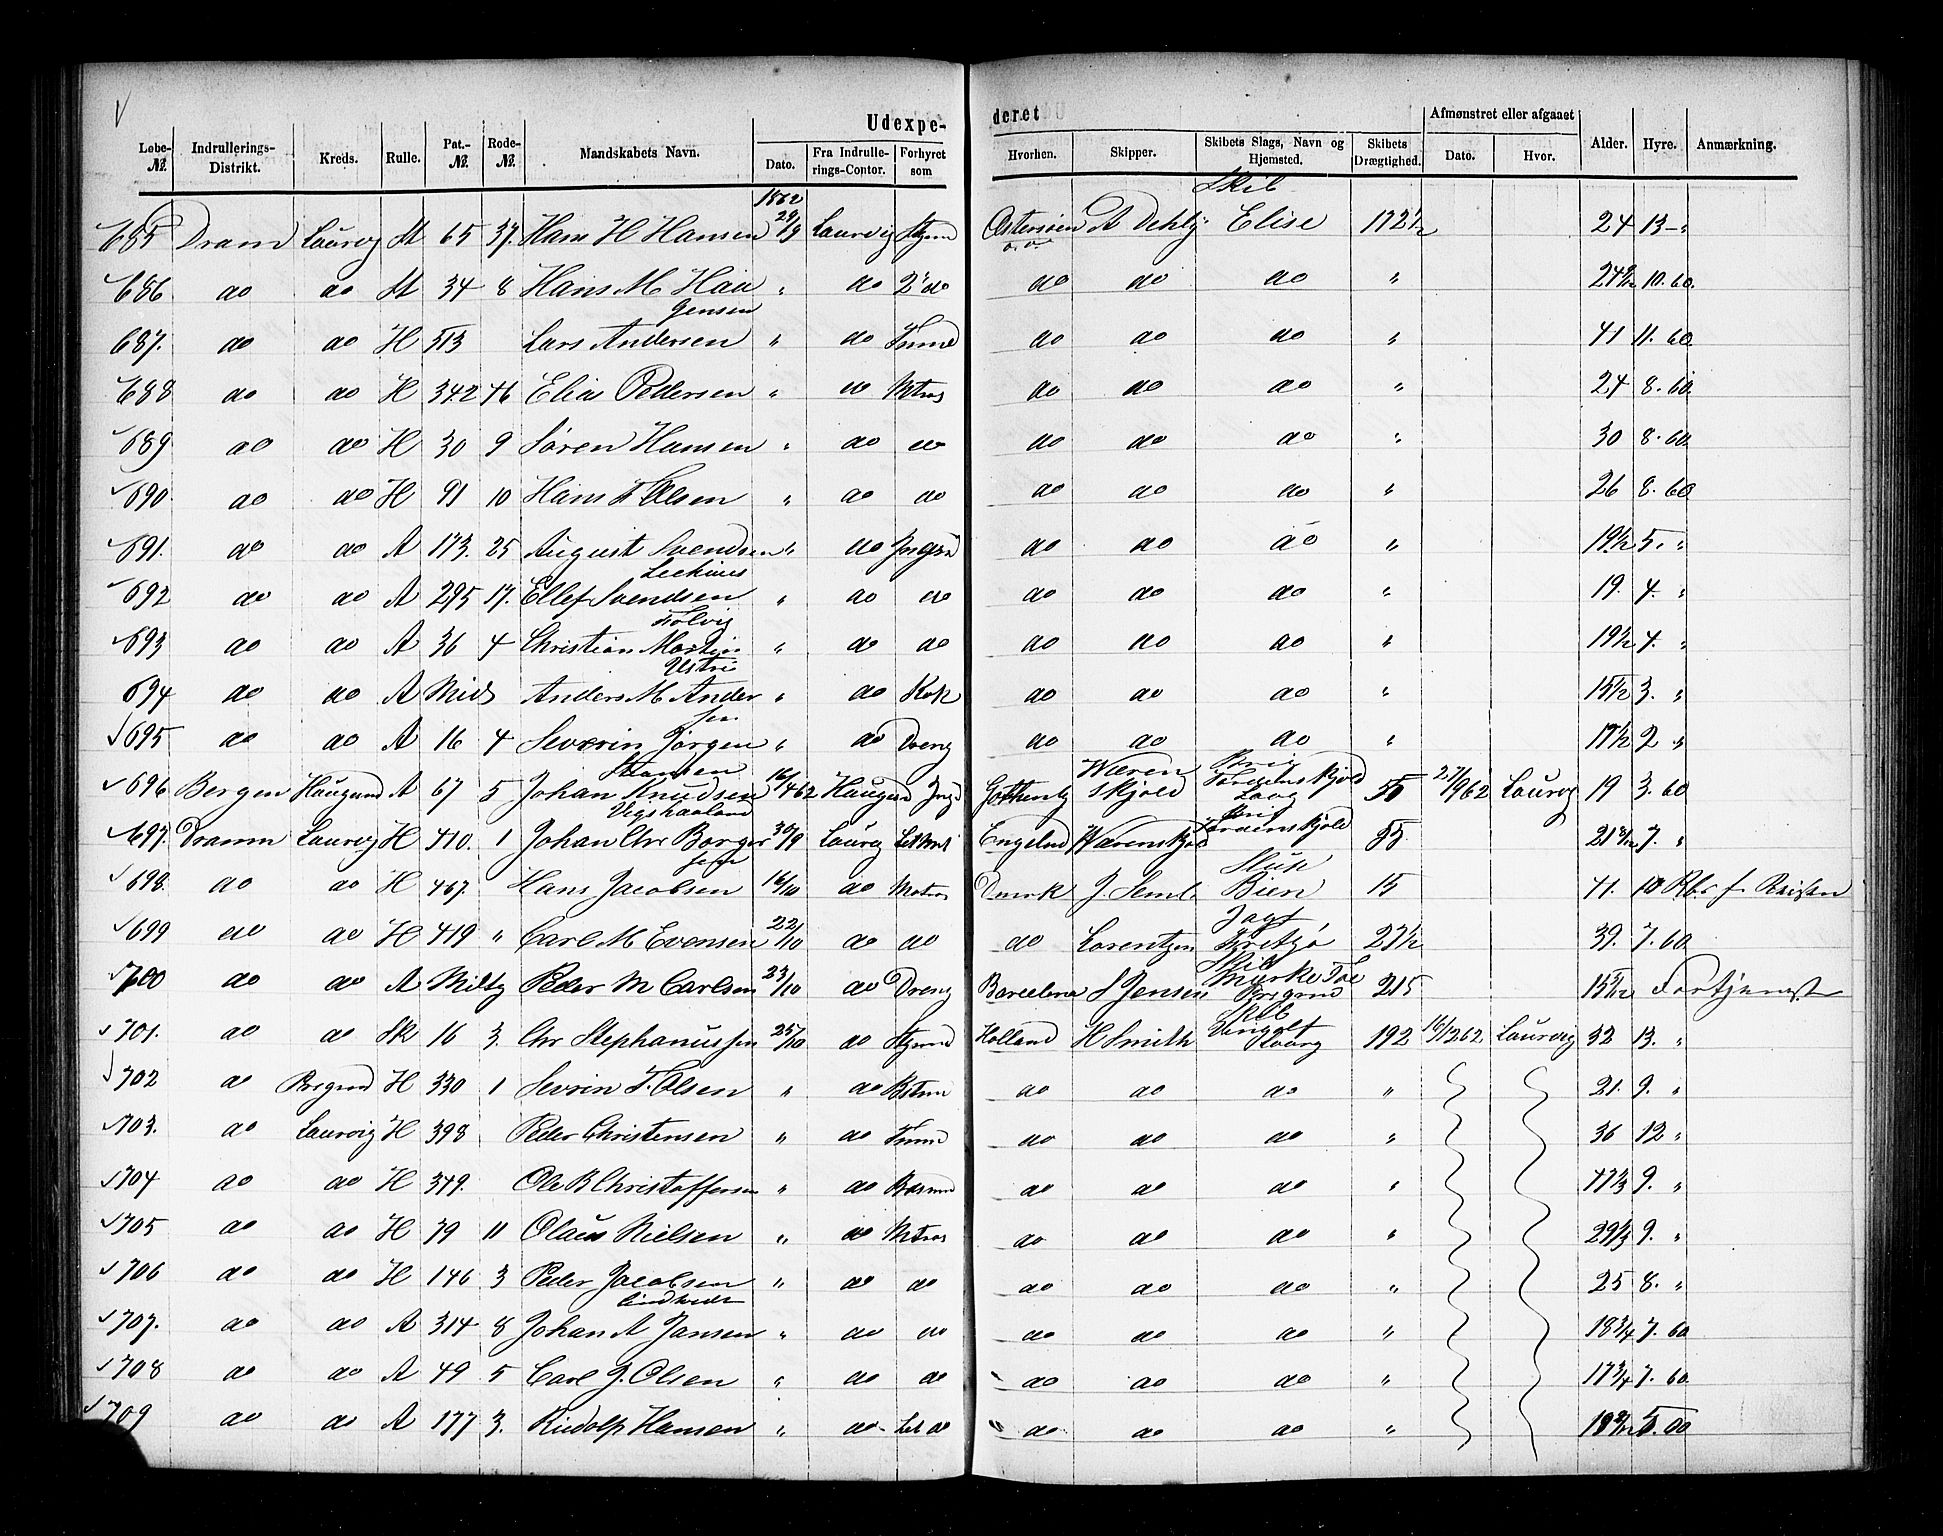 Udexpe- deret
Løbe-№. Indrullerings-Distrikt. Kreds. Rulle. Pat.-№. Rode-№. Mandskabets Navn. Dato. Fra Indrullerings-Contor. Forhyret som Hvorhen. Skipper. Skibets Slags, Navn og Hjemsted. Skibets Drægtighed. Afmønstret eller afgaaet Dato. Hvor. Alder. Hyre. Anmærkning.
1862 Skib
685 Dram Laurvig St 65 37. Hans H Hansen 29/9 Laurvig Stymd Østersøen A Dehly Elise 172½ 24 13 - "
686 do do St 34 8 Hans M Haa " do 2 do do do do " 10. 60.
gensen
687. do do H 513 Lars Andersen " do Tmmd do do do " 41 11. 60
688 do do H 342 46 Elia Pedersen " do Mtros do do do " 24 8. 60
689 do do H 30 9 Søren Hansen " do do do do do " 30 8. 60
690 do do H 91 10 Hans T Olsen " do do do do do " 26 8. 60
691. do do A 173. 25 August Svendsen " do do do do " 19½ 5. "
692 do do A 295 17. Ellef Svendsen " do do do do do " 19. 4. "
693 do do A 36 4 Christian Martin " do do do do do " 19½ 4. "
694 do do A Mids Anders M Ander " do Kok do do do " 15½ 3. "
sen
695 do do A 16 4 Severin Jørgen " do Dreng do do do " 17½ 2 "
Brig
696 Bergen Haugsund A 67 5 Johan Knudsen 16/4 62 Haugsund Gothenbg Wærenskjold Tordenskjold 55 27/9 62 Laurvig 19 3. 60
Brig
697. Dramm Laurvig H 410. 1 Johan Chr Borger 30/9 Laurvig Let Mat Engelnd Wærenskjold Tordenskjold 55 7. "
sen
698. do do H 467. Hans Jacobsen 16/10 do Matros Dmrk J. Seml Bien 15 41. 10 Rbs f. Reisen
Jagt
699 do do H 419 " Carl M Evensen 22/10 do do do Lorentzen 27½ 39. 7. 60
Skib
700 do do A Peder M Carlsen 23/10 do Dreng Barcelona S Jensen 215 Fortjeneste
Skib
701. do do Sk 16 3. Chr Stephanussen 25/10 do Stymd Holland H Smith 192 16/12 62 Laurvig 32 13. "
702 do H 330 1 Sevrin T. Olsen " do Bstmn do do do " 21. 9. "
703. do Laurvig H 398 Peder Christensen " do Tmmd do do do " 36 12 "
704 do do H 349. Ole B Christoffersen " do do do do " 9. "
705 do do H 79 11 Olaus Nielsen " do Mtros do do do " 9. "
706 do do H 146 3 Peder Jacobsen " do do do do do " 25 8. "
707. do do A 314 8 Johan A Jansen " do do do do do " 18¾ 7. 60
708 do do A 49 5 Carl J. Olsen " do do do do do " 17¾ 7. 60
709 do do A 177 3. Rudolf Hansen " do Let do do do do "